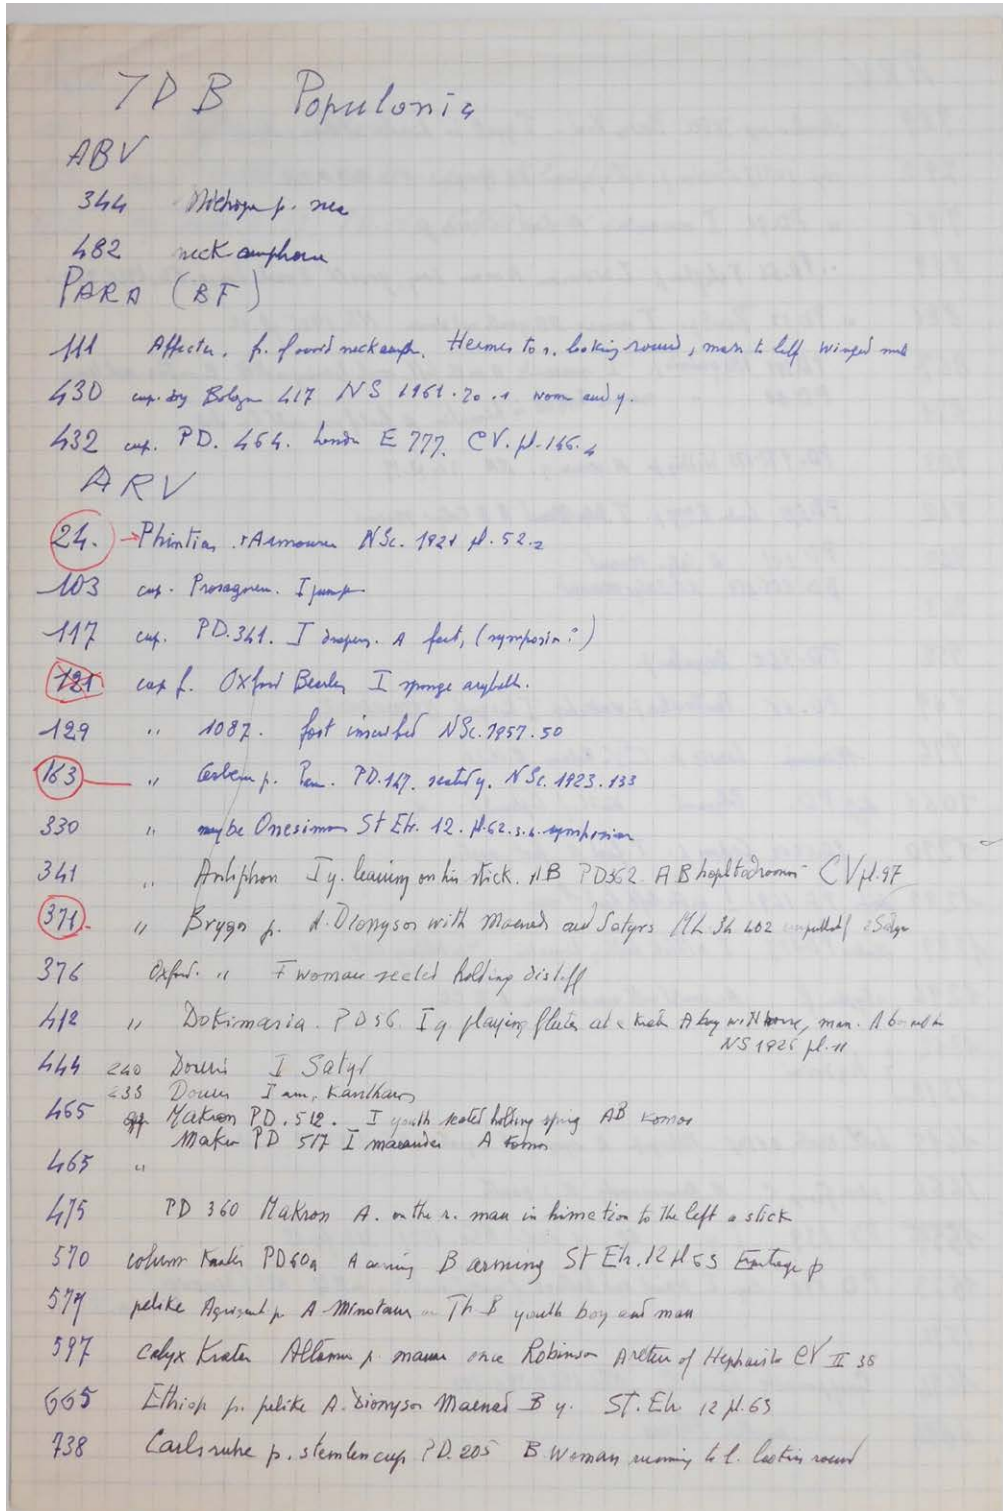 7DB Populonia
ABV
344 p. nea
482 neck amphora
PARA (BF)
111 Affecter. fr. of ovoid neck amph. Hermes to r. looking round, man to left winged male
430 cup. Bologna 417 NS 1961.20.1 woman and y.
432 cup. PD. 464. London E 777. CV. pl. 166.4
ARV
24. → Phintias NSc. 1921 pl. 52.2
103 cup. I jump
117 cup. PD. 341. I A feet, (symposion?)
121 cup f. Oxford Beazley I sponge aryball.
129 " 1087. foot inscribed NSc. 1957.50
163 " p. PD. 147. seated y. NSc. 1923.133
330 " maybe Onesimos St Etr. 12. pl. 62. symposion
341 " Antiphon I y. leaning on his stick. AB PD362 AB hoplitodromoi CV pl. 97
371. " Brygos p. A. Dionysos with Maenads and Satyrs
376 Oxford. " I woman seated holding distaff
412 " Dokimasia. PD56. I y. playing flutes at a krater A boy with horse, man.
NS 1926 pl. 11
444 240 Douris I Satyr
233 Douris I kantharos
465 Makron PD. 512. I youth seated holding AB komos
Makron PD 517 I maeander A komos
465 "
475 PD 360 Makron A. on the r. man in himation to the left a stick
570 column krater PD60a A arming B arming St Etr. 12 pl 63 p
579 pelike Agrigento p A Minotaur Th B youth boy and man
597 calyx krater Altamura p. once Robinson of Hephaistos CV II 38
665 Ethiop p. pelike A. Dionysos Maenad B y. ST. Etr 12 pl. 63
738 Carlsruhe p. stemless cup PD. 205 B Woman running to l. looking round